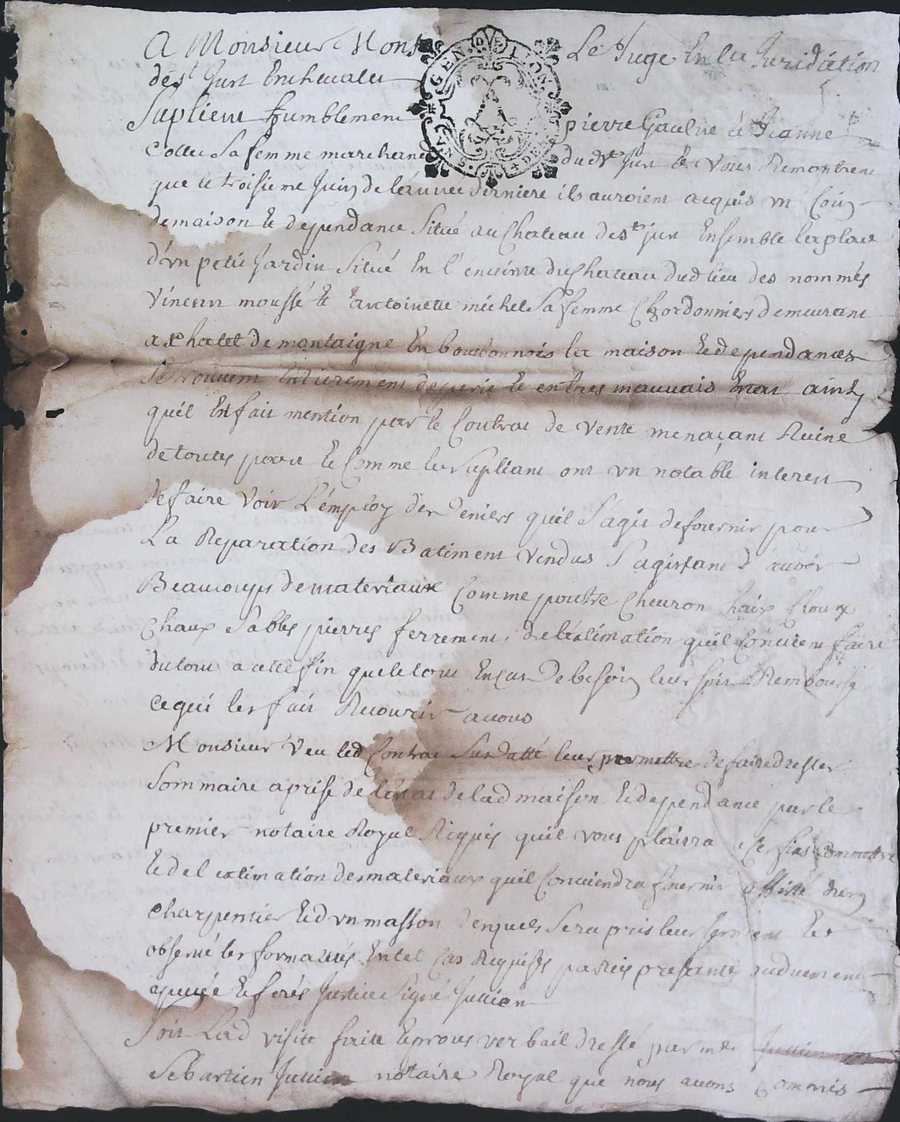 A Monsieur Mons Le Juge En La Juridiction
de st Just En chevalet
Suplient humblement pierre Gaulne & Jeanne
sa femme marchand du dt st Just Et Vous Remontrent
que le troisieme Juin de l'année derniere ils auroient acquis un Coin
de maison Et dependance Situé au Chateau de st Just Ensemble la place
d'un petit Jardin Situé En l'enceinte du Chateau dud lieu des nommés
Vincent moussé Et antoinette michel Sa femme demeurant
a Chatel de montaigne En bourbonnois la maison Et dependances
Se trouvent Entierement Et en tres mauvais Etat ainsy
quil En fait mention par le Contrat de Vente menaçant Ruine
de toutes parts Et Comme les supliants ont un notable interest
de faire Voir L'employ des deniers quil S'agit de fournir pour
La Reparation des Batiment Vendus S'agissant d'avoir
Beaucoups de materiaux Comme poutre Chevron Cloux
Chaux Sables pierres ferrement de l'estimation quil Convient faire
du tout a cette fin que le tout En cas de besoin leur soit Remboursé
ce qui les fait Recourir a vous
Monsieur Veu led Contrat Susdatté leur permettre de faire dresser
Sommaire aprise de l'état de lad maison Et dependance par le
premier notaire Royal Requis quil vous plaira a ces fins Commettre
Et de l'estimation des materiaux quil Conviendra fournir assisté d'un
charpentier Et d'un masson desquels Sera pris leur serment Et
observé les formalités En tel Cas Requises
Et ferés Justice Signé Jullien
Soit Lad visite faite Et proces verbail dressé par me
Sebastien Jullien notaire Royal que nous avons Commis